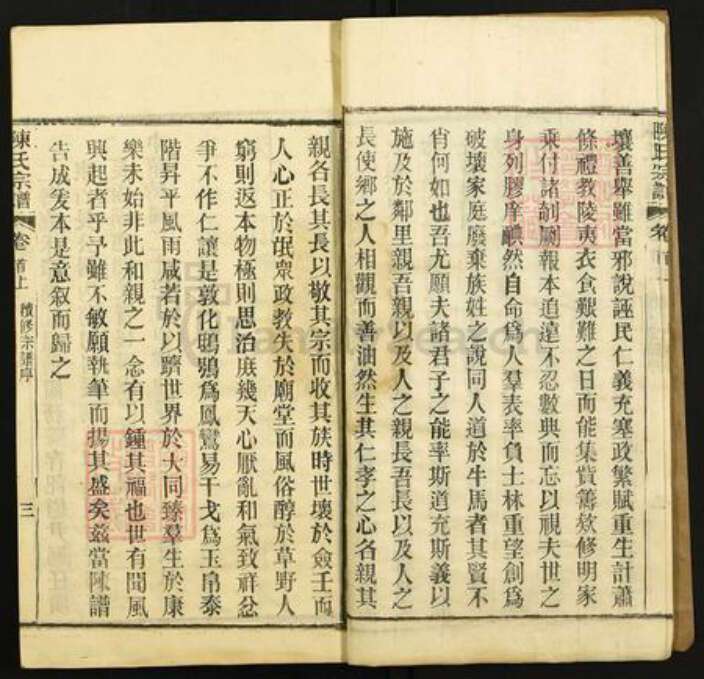 壤善舉雖當邪說誣民仁義充塞政繁賦重生計蕭
條禮教陵夷衣食艱難之日而能集貲籌欵修明家
乘付諸剞劂報本追遠不忍數典而忘以視夫世之
身列膠庠靦然自命爲人羣表率負士林重望創爲
破壞家庭廢棄族姓之說同人道於牛馬者其賢不
肖何如也吾尤願夫諸君子之能率斯道充斯義以
施及於鄰里親吾親以及人之親長吾長以及人之
長使鄉之人相觀而善油然生其仁孝之心各親其
親各長其長以敬其宗而收其族時世壞於僉壬而
人心正於氓衆政教失於廟堂而風俗醇於草野人
窮則返本物極則思治庶幾天心厭亂和氣致祥忿
爭不作仁讓是敦化鴟鴞爲鳳鸞易干戈爲玉帛泰
階昇平風雨咸若於以躋世界於大同臻羣生於康
樂未始非此和親之一念有以鍾其福也世有聞風
興起者乎予雖不敏願執筆而揚其盛矣茲當陳譜
告成爰本是意叙而歸之
陳氏宗譜
卷首上
續修宗譜序
三